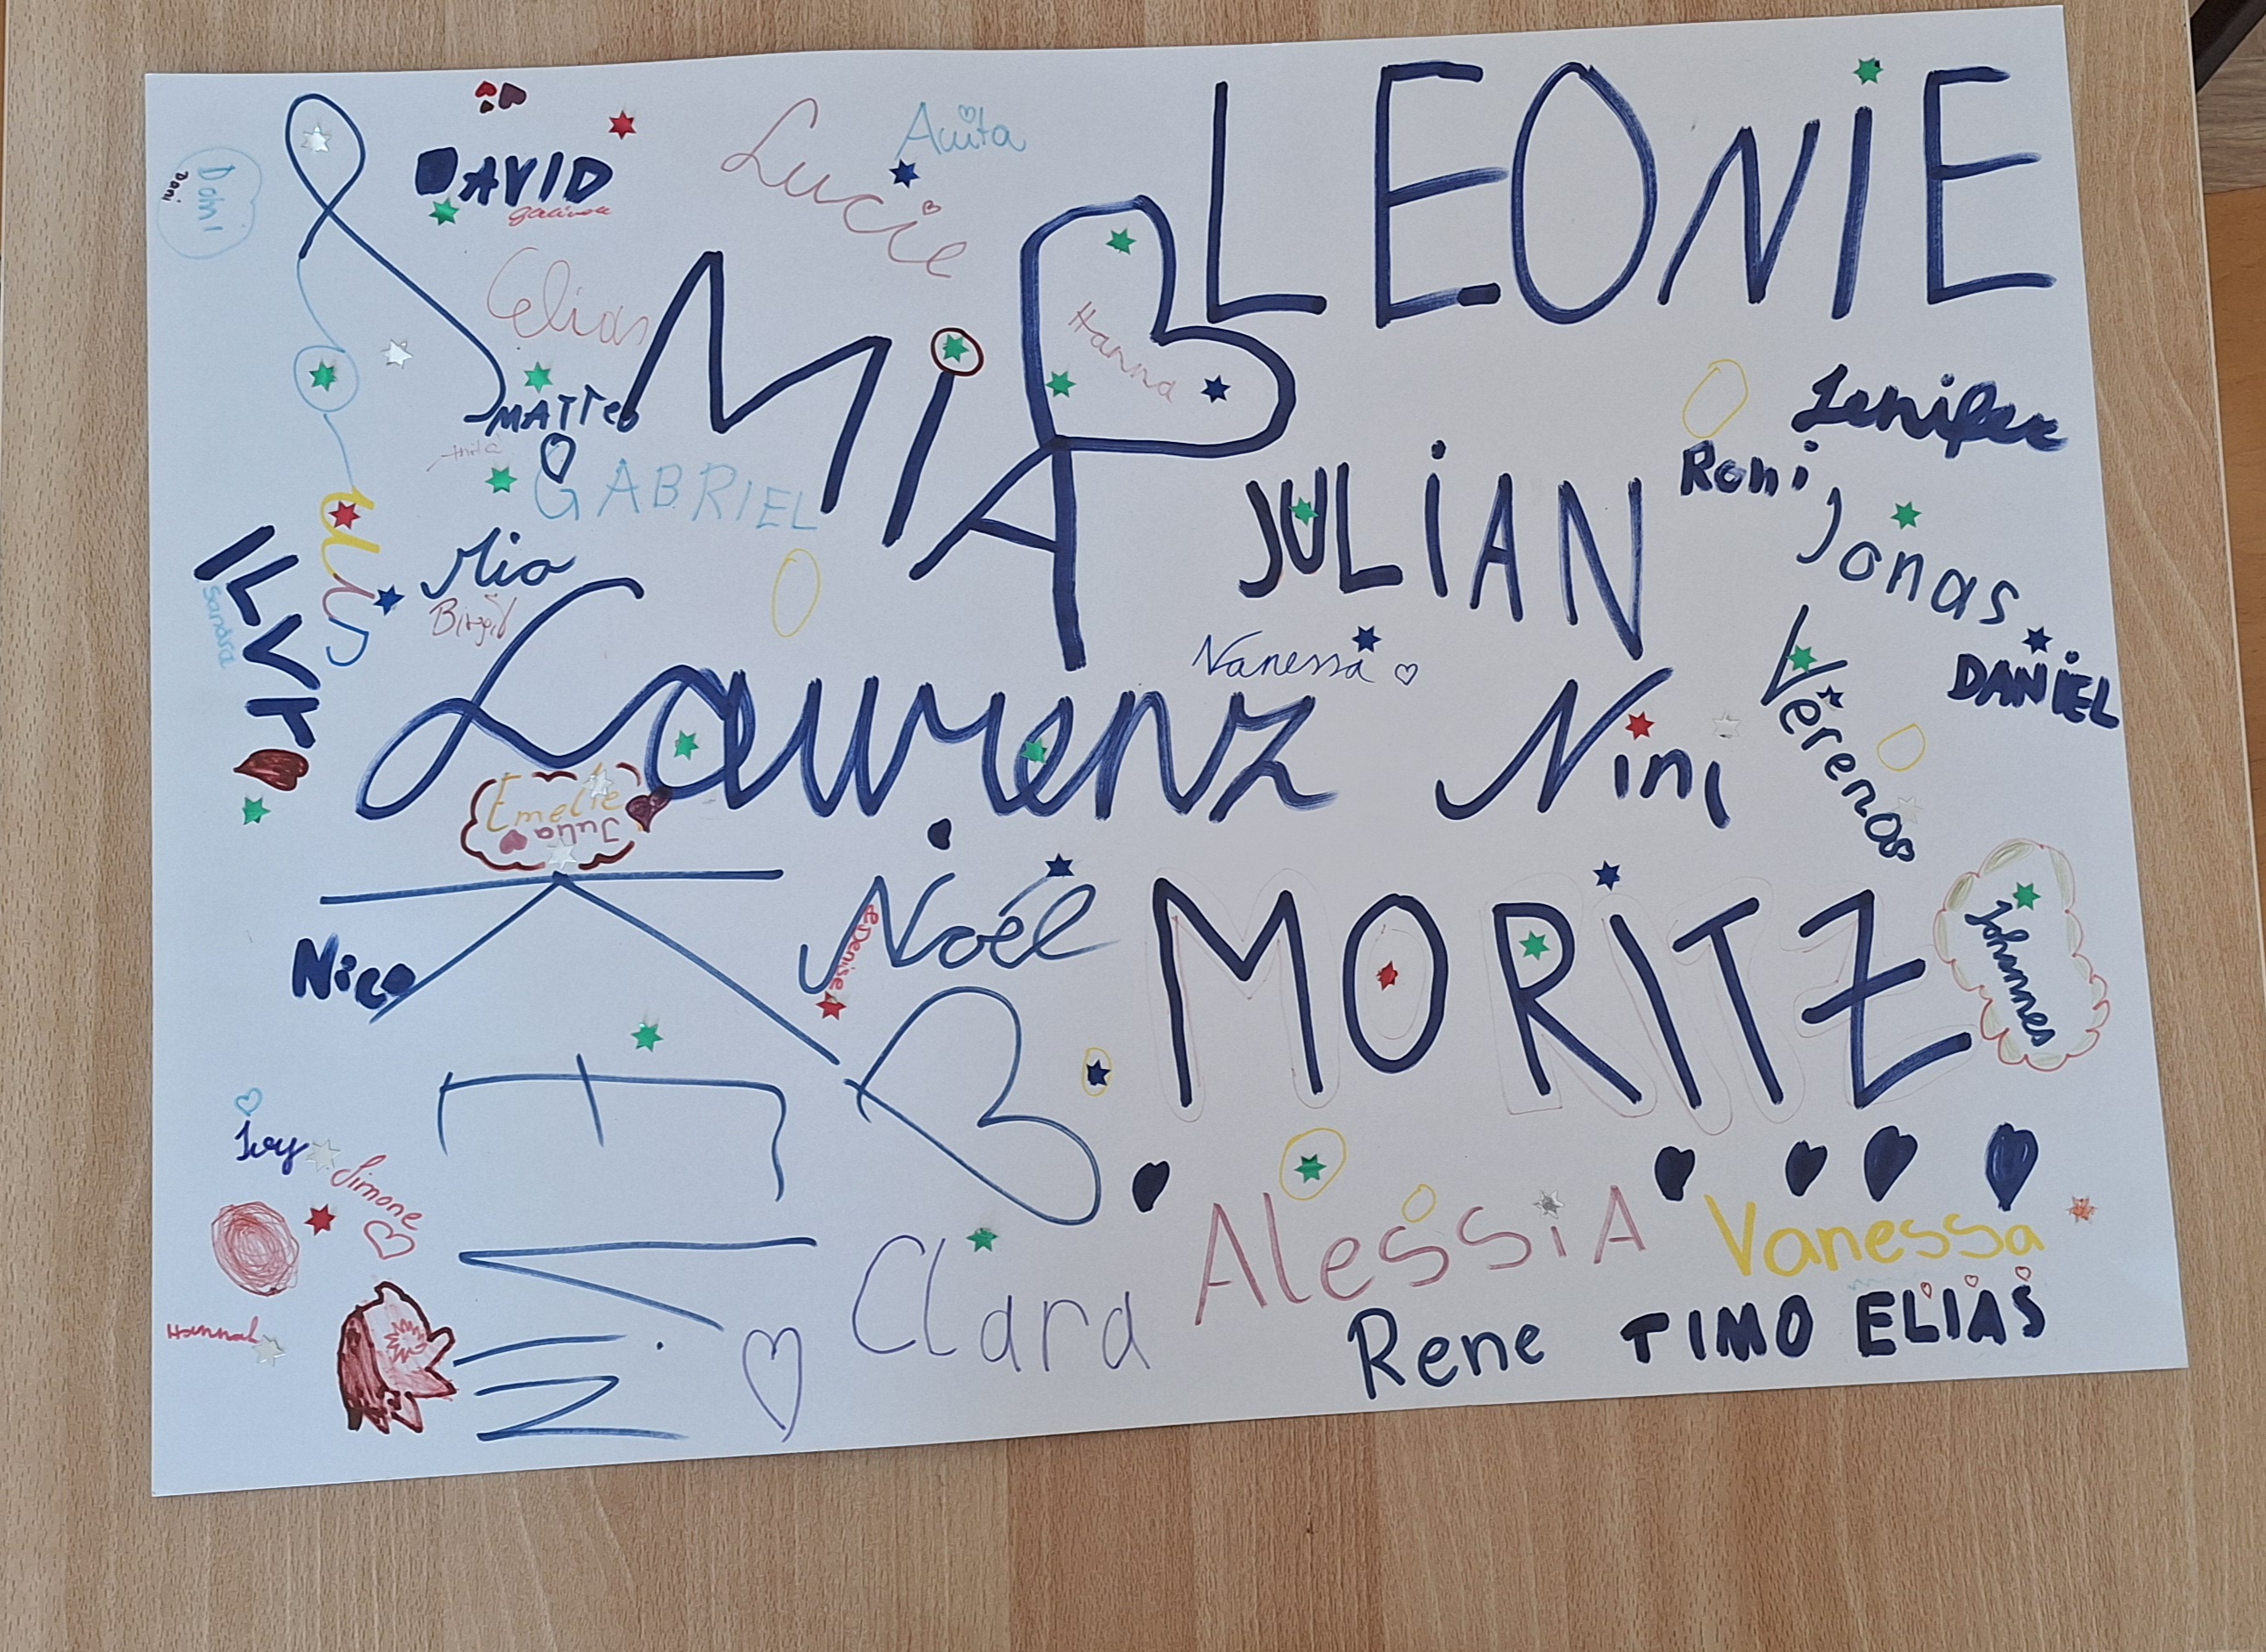 LEONIE
Anita
Lucie
DAVID
Dani
Dani
Elias
MiA
Hanna
MATTEO
Anita
GABRIEL
Jenifer
Roni
JULiAN
Jonas
Mia
Birgit
Sandra
Vanessa
DANiEL
Verena
Laurenz
Nini
Emelie
Julia
Nico
Noel
Denise
MORiTZ
Johannes
Ivy
Simone
Hannah
Clara
AlessiA
Vanessa
Rene
TIMO
ELiAS